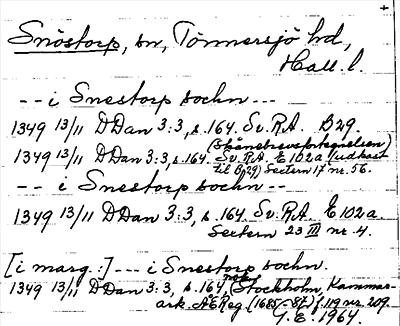 +
Snöstorp, sn, Tönnersjö hd,
Hall. l.
-- i Snestorp sochn --
1349 13/11 DDan 3:3, s. 164. Sv. R.A. B29.
(Skånebrevsförtegnelsen)
1349 13/11 DDan 3:3, s. 164. Sv. R.A. E 102a (udkast
til B29) Sectern 17 nr. 56.
-- i Snestorp sochn --
1349 13/11 DDan 3:3, s. 164. Sv. R.A. E 102a.
Sectern 23 III nr. 4.
[i marg.:] --- i Snestorp sochn.
1349 13/11 DDan 3:3, s. 164, Stockholm, Kammar-
ark. AEReg (1685-87) f. 119 nr. 209.
J. E. 1964.